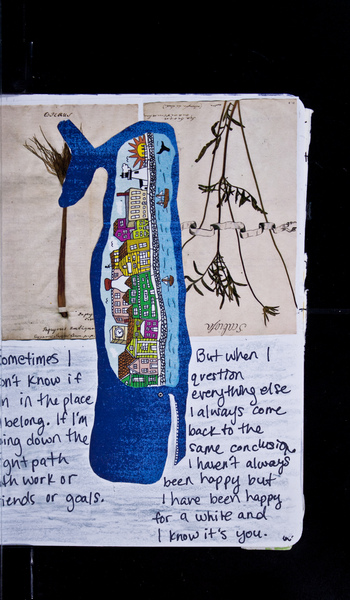 ometimes I
on't know if
n in the place
belong. If I'm
ing down the
ght path
th work or
iends or goals.
But when I
question
everything else
I always come
back to the
same conclusion.
I haven't always
been happy but
I have been happy
for a while and
I know it's you.